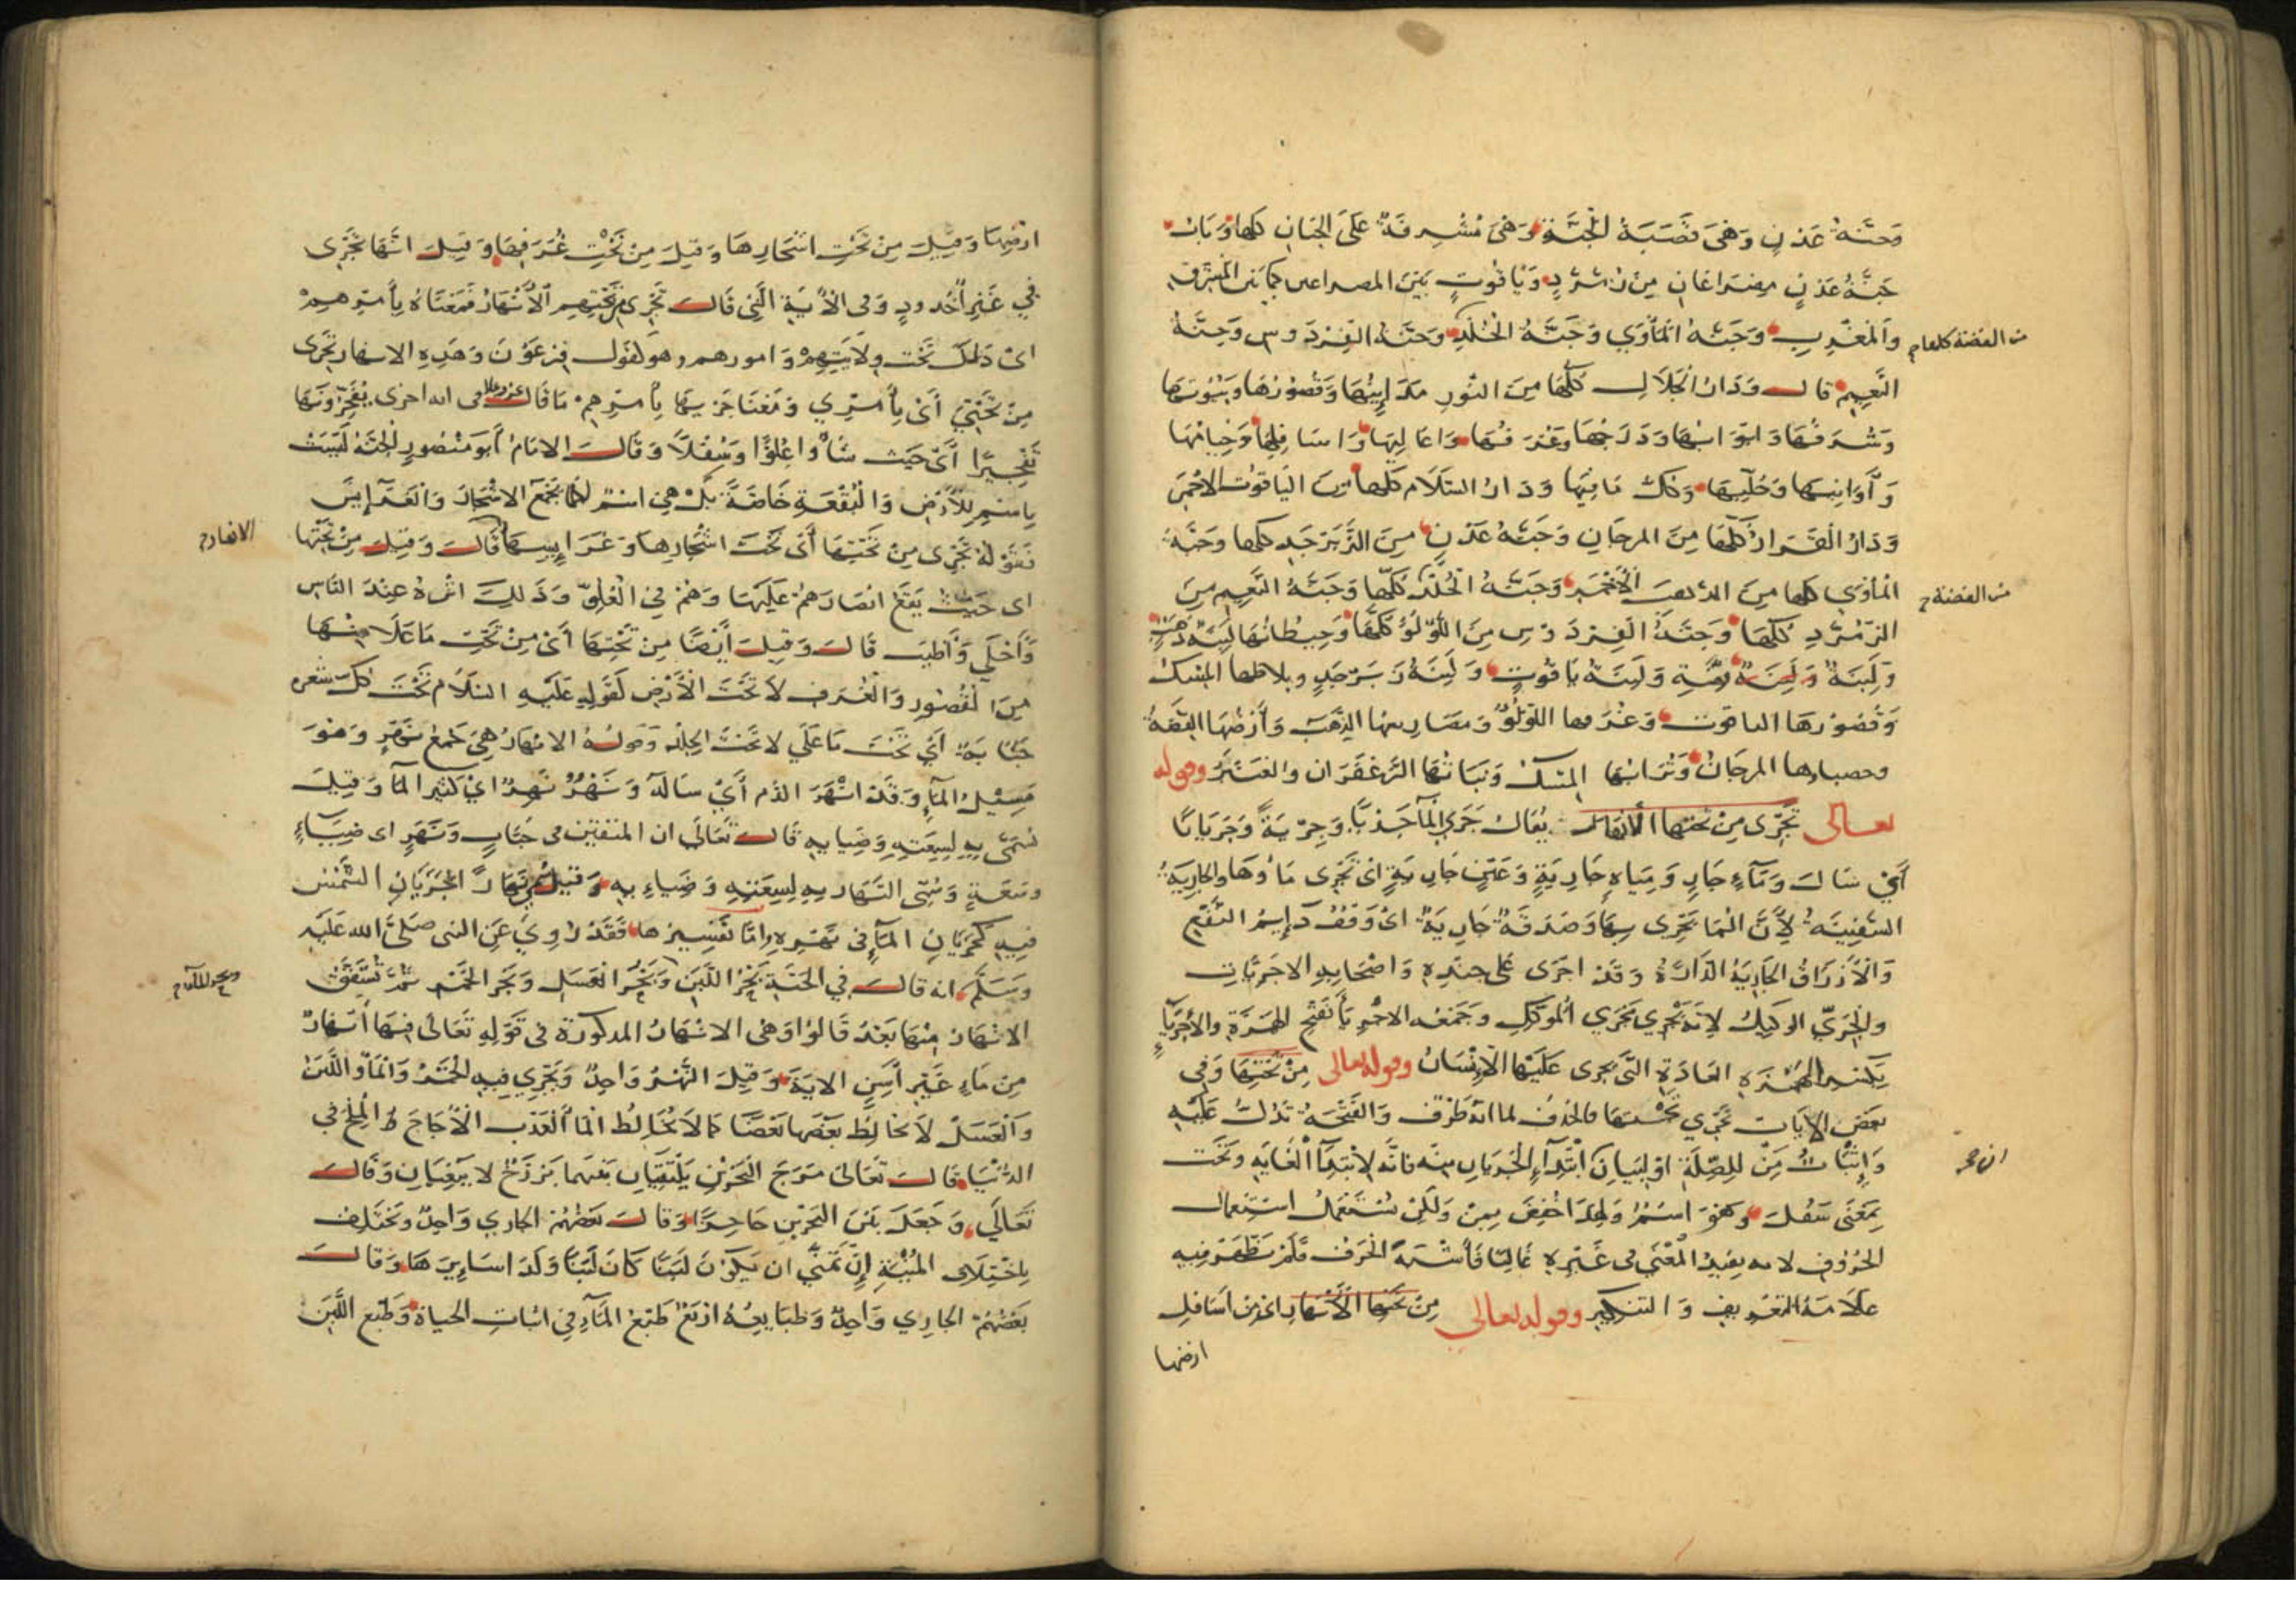 وَجنَّةُ عَدْنٍ وَهْىَ قصَبَةُ الجَنَّةِ وَهْىَ مُشْرِفَةٌ عَلىَ الجِنَانِ كلها وَبَابُ
جَنَّةُ عَدْنٍ مِصْرَاعَانِ مِنْ زُمُرُّدٍ وَيَاقُوتٍ بَيْنَ المصراعين كما بَيْنَ المَشْرِقِ
وَالمَغْرِبِ وَجَنَّةُ المَأْوَي وَجَنَّةُ الخُلْدِ وَجَنَّةُ الفِرْدَوس وَجنَّةُ
من الفضة كلها
النَّعِيمِ قال وَدَارُ الجَلَالِ كُلُّهَا مِنَ النُّورِ مَدَايِنُهَا وَقصُورُهَا وَبُيُوتُهَا
وَشُرَفُهَا وَابْوَابُهَا وَدَرَجُهَا وَغُرَفُهَا وَاعَالِيهَا وَاسَافِلُهَا وَخِيَامُهَا
وَأَوَانِيهَا وَحُلِيُّهَا وَكلُّ مَا فِيهَا وَدَارُ السَّلَام كلها مِنَ اليَاقُوت الاحْمَرِ
وَدَارُ القَرَارِ كُلُّهَا مِنَ المرجَانِ وَجَنَّةُ عَدْنٍ مِنَ الزَّبَرْجَدِ كلها وجَنَّةُ
المأوَى كلها مِنَ الذهب الأَحْمَرِ وَجَنَّةُ الخُلْدِ كُلّهَا وَجَنَّةُ النَّعِيمِ مِنَ
من الفضة
الزّمُرّدِ كُلّهَا وَجَنَّةُ الفِرْدَوْسِ مِنَ اللُّؤْلُؤِ كُلّهَا وَحِيطَانُهَا لَبِنَةٌ ذهَبٍ
وَلَبِنَةٌ فِضَّةٍ وَلَبِنَةٌ يَاقُوتٍ وَلَبِنَةُ زَبَرْجَدٍ وملاطها المِسْكُ
وَقصُورُهَا الياقوت وَغُرَفها اللّؤْلُؤُ وَمصَاريعها الذَّهَبُ وَأَرْضُهَا الفِضَّةُ
وحصباؤها المرجَانُ وَتُرَابُهَا المِسْكُ وَنَبَاتُهَا الزَّعْفَرَان والعَنْبَرُ وقوله
تعالى تَجْرَى مِنْ تَحْتِهَا الأَنهَارُ يُقَالُ جَرَى المآءُ جَرْيًا وَجِرْيَةً وَجَرَيَانًا
أَىْ سَالَ وَمَآءٍ جَارٍ وَمِيَاهٍ جَارِيَةٍ وَعَيْنٍ جَارِيَةٍ اىْ تَجْرِى مَاؤُهَا وَالجارِيَةُ
السَّفِينَةُ لِأَنَّ المَا تَجْرِى بِهَا وَصَدَقَةٌ جَارِيَةٌ اىْ وَقْفٌ دَايِمُ النَّفْعِ
وَالأَرْزَاقُ الجَارِيَةُ الدَّارَّةُ وَقَدْ اجرَى عَلى جندِهِ وَاصْحَابِهِ الاجرَيَاتِ
والجَرِيُّ الوَكِيلُ لِاَنَّهُ يَجْرِي مَجْرَي المُوَكِّلِ وجَمْعُه الاجْرِيَاءُ بفَتْحِ الهَمزَةِ والأجْرِيَاءُ
بِكَسْرِ الهَمْزَةِ العَادَةِ الَّتى يجرى عَلَيْهَا الأِنْسَانُ وقوله تعالى مِنْ تَحْتِهَا وَفِى
بَعْضِ الاَيَات تَجْرِي تَحْتَهَا فالحذفُ لما انَّهُ ظَرْفٌ وَالفَتْحَةُ تَدُلُّ عَلَيْهِ
وَإثْبَاتُ مِنْ لِلصِّلَةِ اوْ لِبَيَانِ ابْتِدَآءِ الجَرَيَانِ مِنْه فَانَّهُ لابْتِدَآءِ الغَايَةِ وَتَحْتَ
بِمَعْنَى سَفُلَ وَهُوَ اسْمٌ وَلِهَذَا خُفِضَ بِمِنْ وَلَكِنْ يُسْتَعْمَلُ اسْتِعْمَال
الحُرُوفِ لانه يفِيدُ المَعْنَى فى غَيْرِهِ غَالِبًا فَأَشْبَهَ الحَرْفَ فَلَمْ يَظْهَرْ فِيهِ
عَلَامَةُ التَعْرِيفِ وَالتنكيرِ وقوله تعالى مِنْ تَحْتِهَا الأَنْهَارُ اى مِنْ اَسَافِلِ
ارضها
ارْضِهَا وَقِيلَ مِنْ تَحْتِ اشْجَارِهَا وَقِيلَ مِنْ تَحْتِ غُرَفِهَا وَقِيلَ انَّهَا تَجْرِى
فِي غَيْرِ أُخْدُودٍ وَفى الأَيَةِ الَّتِى قَالَ تَجْرِى مِن تَحْتِهِمِ الأَنْهَارُ فَمَعْنَاهُ بِأَمْرِهِمْ
اىْ ذَلِكَ تَحْتَ وِلَايَتِهِمْ وَامورهم وهو كقَول فِرْعَوْنَ وَهَذِهِ الانهار تَجْرِى
مِنْ تَحْتِيَ أَىْ بِأَمْرِي وَمَعْنَا جَرْيِهَا بِأَمْرِهِم مَا قَالَ عز وعلا فى ايه اخرى يُفَجِّرُونَهَا
تَفْجِيرًا أَىْ حَيْث شَاؤُا عُلْوًا وَسُفْلًا وَقَالَ الامَامُ أَبو مَنْصُورٍ الجنَّةُ لَيْسَتْ
بِاسْمٍ لِلأَرْضِ وَالبُقْعَةِ خَاصَّةً بَلْ هِىَ اسْمٌ لما يَجْمَعُ الاشْجَارَ وَالغَرَايِسَ
فَقَوْلُهُ تَجْرِى مِنْ تَحْتِهَا أَىْ تَحْتَ اشْجَارِهَا وَغَرَايِسِهَا قَالَ وَقِيلَ مِنْ تَحْتِهَا
الانهار
اى حَيْثُ يَقَعُ ابْصَارُهُمْ عَلَيْهَا وَهُمْ فِى العُلُوِّ وَذَلِكَ انْزَهُ عِنْدَ النَّاسِ
وَأَحْلَي وَأَطْيَبُ قَالَ وَقِيلَ أَيْضًا مِنْ تَحْتِهَا أَىْ مِنْ تَحْتِ مَا عَلَا مِنْهَا
مِنَ القُصُورِ وَالغُرَفِ لَا تَحْتَ الأَرْضِ لقَولِهِ عَلَيْهِ السَّلَامُ تَحْتَ كُلِّ شعره
جَنَابَةٌ أَىْ تَحْتَ مَا عَلَى لا تَحْتَ الجِلْدِ وَقولُهُ الانهَارُ هِىَ جَمْعُ نَهْرٍ وَهُوَ
مَسِيْلُ المآءِ وَقَدْ انْهَرَ الدَّم أَىْ سَالَهُ وَنَهْرٌ نَهِرٌ اىْ كَثِيرُ المآءِ وَقِيلَ
سُمِّىَ بِهِ لِسِعَتِهِ وَضِيَايِهِ قَالَ تَعَالَى ان المتقين فى جَنَّاتٍ وَنَهَرٍ اى ضِيَاءٍ
وسَعَةٍ وَسُمِّى النَّهَار بِهِ لِسِعَتِهِ وَضِيَاءِ بِهِ وَقِيلَ سُمِّىَ نَهَارًا لِجَرَيَانِ الشَّمْسِ
فِيهِ كَجَرَيَانِ المآءِ فى نَهْرِهِ وامَّا تفْسِيرُهَا فَقَدْ رُوِيَ عَنِ النبى صَلَّى الله عَلَيْهِ
وسَلَّم انه قالَ فِي الجَنَّةِ بَحْرُ اللَّبَنِ وَبَحْرُ العَسَلِ وَبَحر الخَمْرِ ثُمَّ تَشَقَّقُ
وبحر للماء
الانْهَارُ مِنْهَا بَعْدُ قَالُوا وَهْىَ الانْهَارُ المذكورَة فِى قَوْلِهِ تَعَالَى فِيهَا أَنْهَارٌ
مِنْ مَاءٍ غَيْرِ أسِنٍ الايَةَ وَقِيلَ النَّهْرُ وَاحِدٌ وَيَجْرِي فِيهِ الخَمْرُ وَالمَاءُ وَاللَّبَنُ
وَالعَسَلُ لَا يخَالِطُ بَعْضُهَا بَعْضًا كمَا لَا يُخَالِطُ المَاءُ العَذْبُ الأُجَاجَ المِلْحَ فى
الدُّنْيَا قَالَ تَعَالىَ مَرَجَ البَحْرَيْنِ يَلْتَقِيَانِ بَيْنَهما بَرْزَخٌ لا يَبْغِيَانِ وَقَالَ
تَعَالَى وَجَعَلَ بَيْنَ البَحْرَيْنِ حَاجِزًا وَقَالَ بَعْضُهُمْ الجاري وَاحِدٌ وَيَخْتَلِفُ
بِاخْتِلَافِ المُنْيَةِ إِنْ تَمَنَّي ان يَكُونَ لَبَنًا كَانَ لَبَنًا وَكَذَا سَايِرُهَا وَقَالَ
بَعْضُهُمْ الجَارِي وَاحِدٌ وَطبَايِعُهُ ارْبَعْ طَبْعُ المَآءِ فِى اثبَاتِ الحياةِ وَطَبْعُ اللَّبَنِ